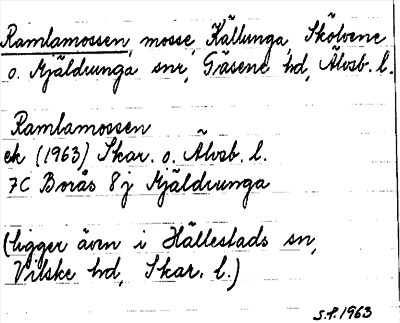 Ramlamossen, mosse, Källunga, Skölvene
o. Mjäldrunga snr, Gäsene hd, Älvsb. l.
Ramlamossen
ek (1963) Skar. o. Älvsb. l.
7C Borås 8j Mjäldrunga
(ligger även i Hällestads sn,
Vilske hd, Skar. l.)
S.P. 1963